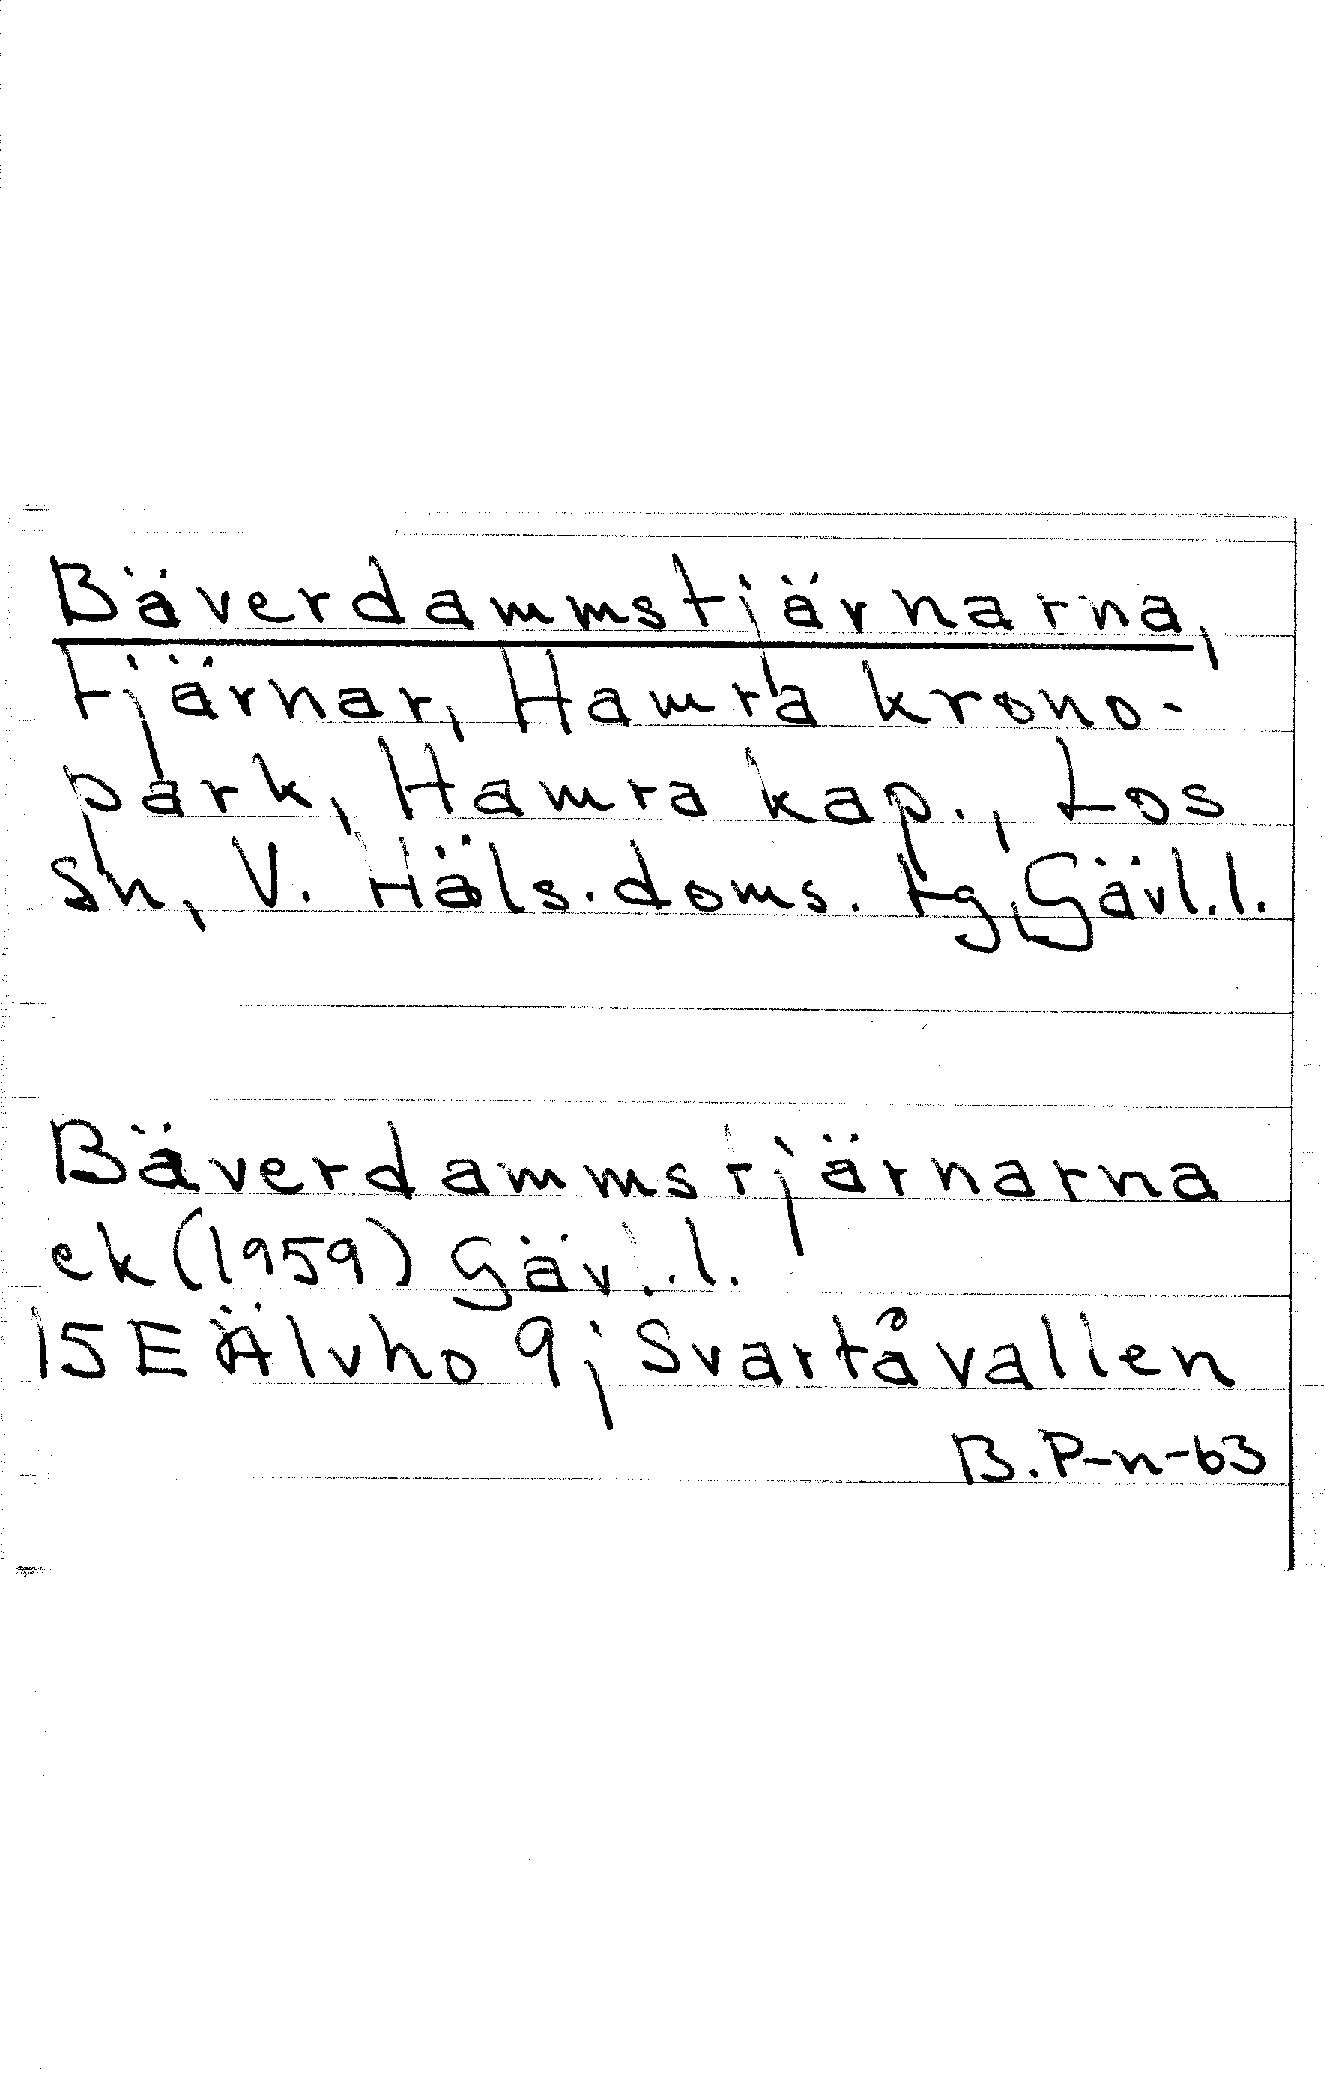 Bäverdammstjärnarna,
tjärnar, Hamra krono-
park, Hamra kap., Los
sn, V. Häls. doms. tg, Gävl.l.
Bäverdammstjärnarna
ek (1959) Gävl.l.
15 E Älvho 9j Svartåvallen
B. P-n-63